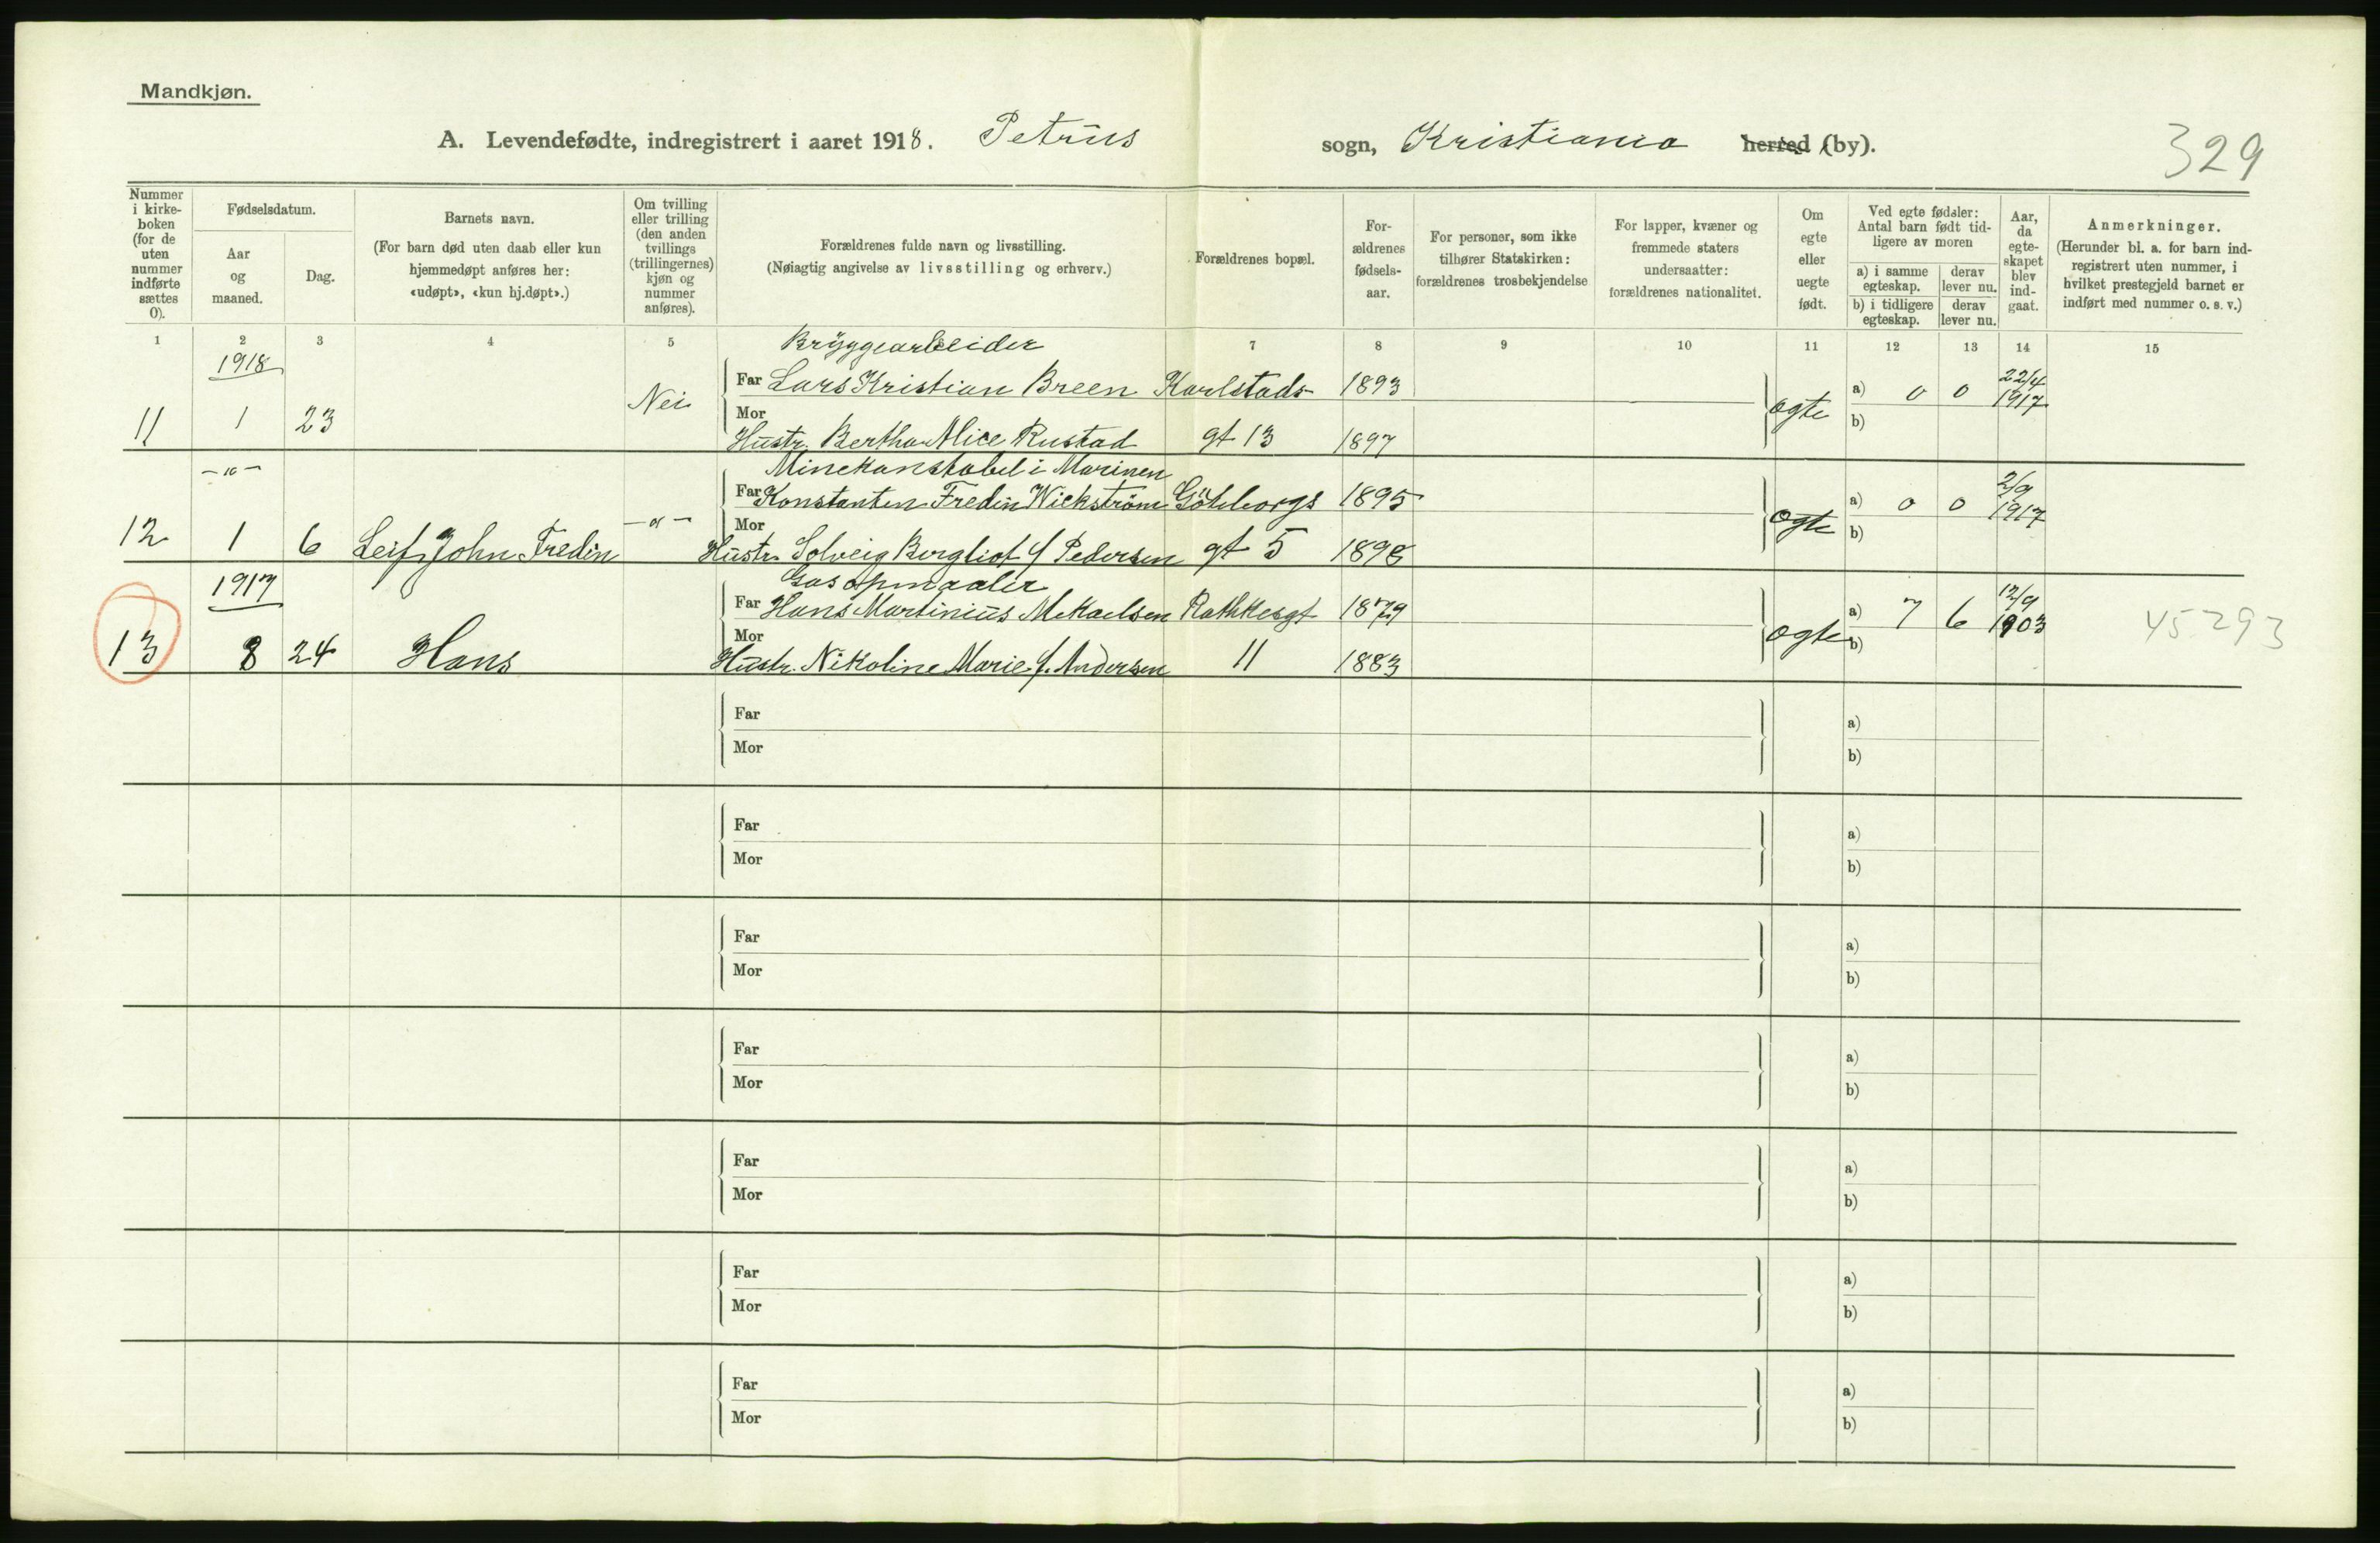 Mandkjøn.
A. Levendefødte, indregistrert i aaret 1918. Petrus sogn, Kristiania herred (by).
329
Nummer i kirke-boken (for de uten nummer indførte sættes 0).
Fødselsdatum.
Aar og maaned.
Dag.
Barnets navn.
(For barn død uten daab eller kun hjemmedøpt anføres her: «udøpt», «kun hj.døpt».)
Om tvilling eller trilling (den anden tvillings (trillingernes) kjøn og nummer anføres).
Forældrenes fulde navn og livsstilling.
(Nøiagtig angivelse av livsstilling og erhverv.)
Forældrenes bopæl.
For-ældrenes fødsels-aar.
For personer, som ikke tilhører Statskirken: forældrenes trosbekjendelse
For lapper, kvæner og fremmede staters undersaatter: forældrenes nationalitet.
Om egte eller uegte født.
Ved egte fødsler: Antal barn født tid-ligere av moren
a) i samme egteskap.
derav lever nu.
b) i tidligere egteskap.
derav lever nu.
Aar, da egte-skapet blev ind-gaat.
Anmerkninger.
(Herunder bl. a. for barn ind-registrert uten nummer, i hvilket prestegjeld barnet er indført med nummer o. s. v.)
1 2 3 4 5 7 8 9 10 11 12 13 14 15
1918
Bryggearbeider
Nei Far Lars Kristian Breen Karlstads- 1893 ægte a) 0 0 22/4 1917
11 1 23 Mor Hustr. Bertha Alice Rustad gt 13 1897 b)
—"— Minekonstabel i Marinen
Far Konstanten Fredin Wickström Göteborgs 1895 ægte a) 0 0 2/9 1917
12 1 6 Leif John Fredin —"— Mor Hustr. Solveig Bergliot f Pedersen gt 5 1898 b)
1917 Gasopmaaler
Far Hans Martinius Mekaelsen Rathkesgt 1879 ægte a) 7 6 12/9 1903 45293
13 8 24 Hans Mor Hustr. Nikoline Marie f. Andersen 11 1883 b)
Far a)
Mor b)
Far a)
Mor b)
Far a)
Mor b)
Far a)
Mor b)
Far a)
Mor b)
Far a)
Mor b)
Far a)
Mor b)